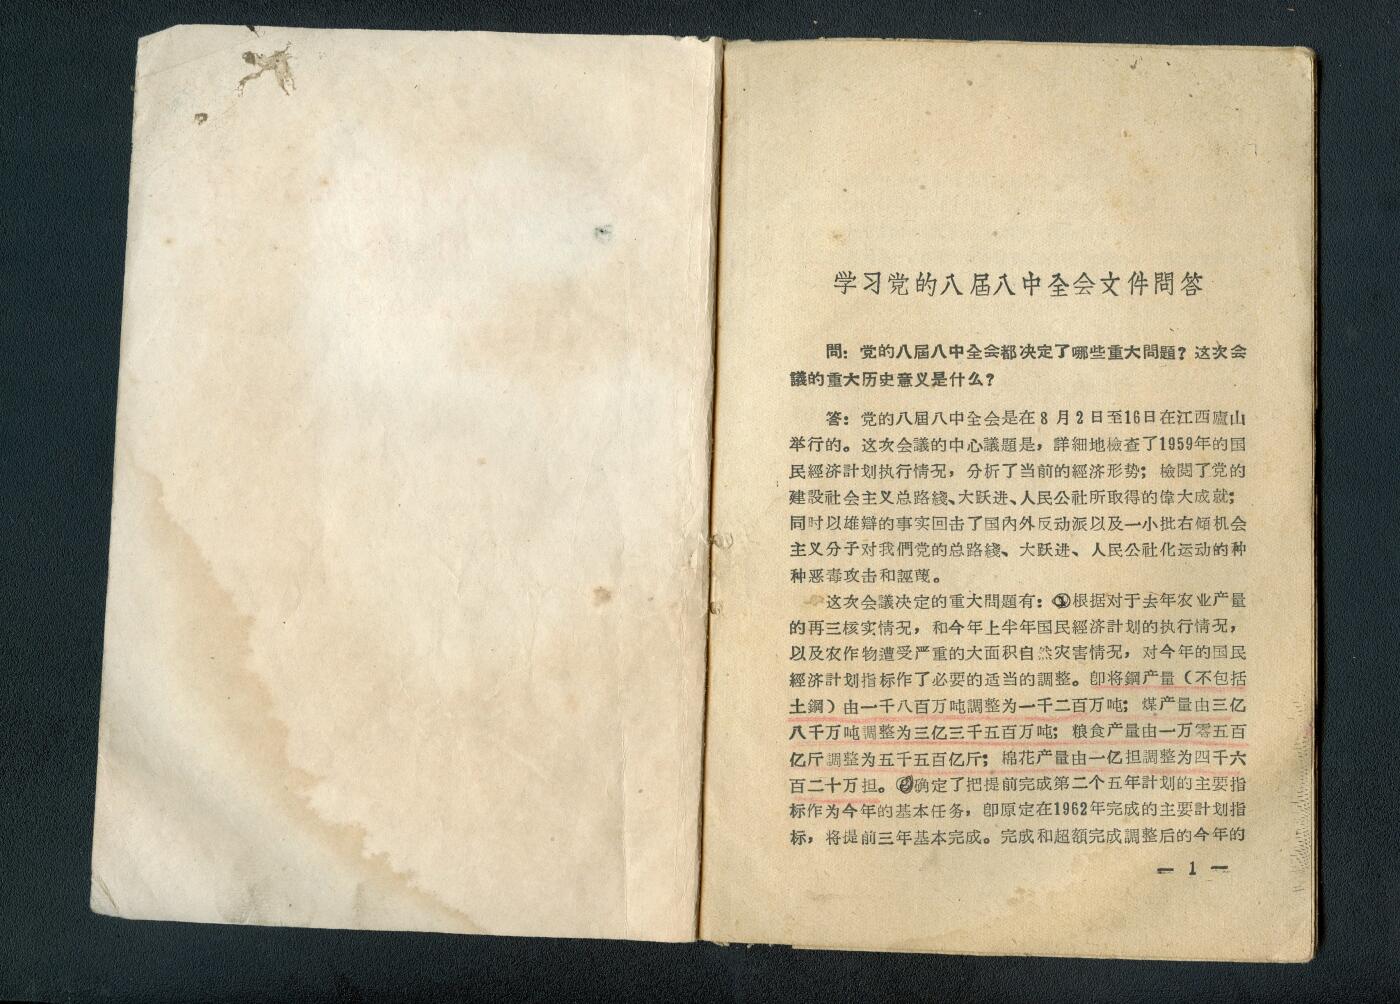 学习党的八届八中全会文件問答
問：党的八届八中全会都决定了哪些重大問題？这次会
議的重大历史意义是什么？
答：党的八届八中全会是在8月2日至16日在江西廬山
举行的。这次会議的中心議題是，詳細地檢查了1959年的国
民經济計划执行情况，分析了当前的經济形势；檢閱了党的
建設社会主义总路綫、大跃进、人民公社所取得的偉大成就；
同时以雄辯的事实回击了国内外反动派以及一小批右傾机会
主义分子对我們党的总路綫、大跃进、人民公社化运动的种
种恶毒攻击和誣蔑。
这次会議决定的重大問題有：①根据对于去年农业产量
的再三核实情况，和今年上半年国民經济計划的执行情况，
以及农作物遭受严重的大面积自然灾害情况，对今年的国民
經济計划指标作了必要的适当的調整。卽将鋼产量（不包括
土鋼）由一千八百万吨調整为一千二百万吨；煤产量由三亿
八千万吨調整为三亿三千五百万吨；粮食产量由一万零五百
亿斤調整为五千五百亿斤；棉花产量由一亿担調整为四千六
百二十万担。②确定了把提前完成第二个五年計划的主要指
标作为今年的基本任务，卽原定在1962年完成的主要計划指
标，将提前三年基本完成。完成和超額完成調整后的今年的
— 1 —